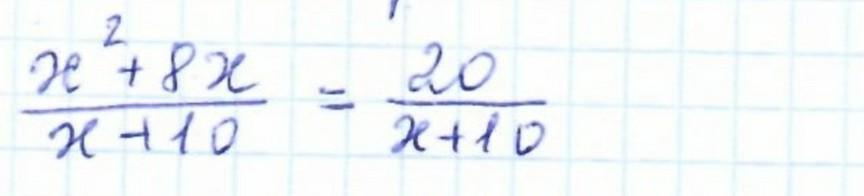 (x²+8x)/(x+10) = 20/(x+10)